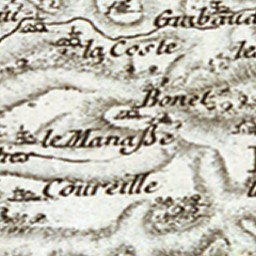 Guibaud
la Coste
Bonel
le Manaßé
Coureille